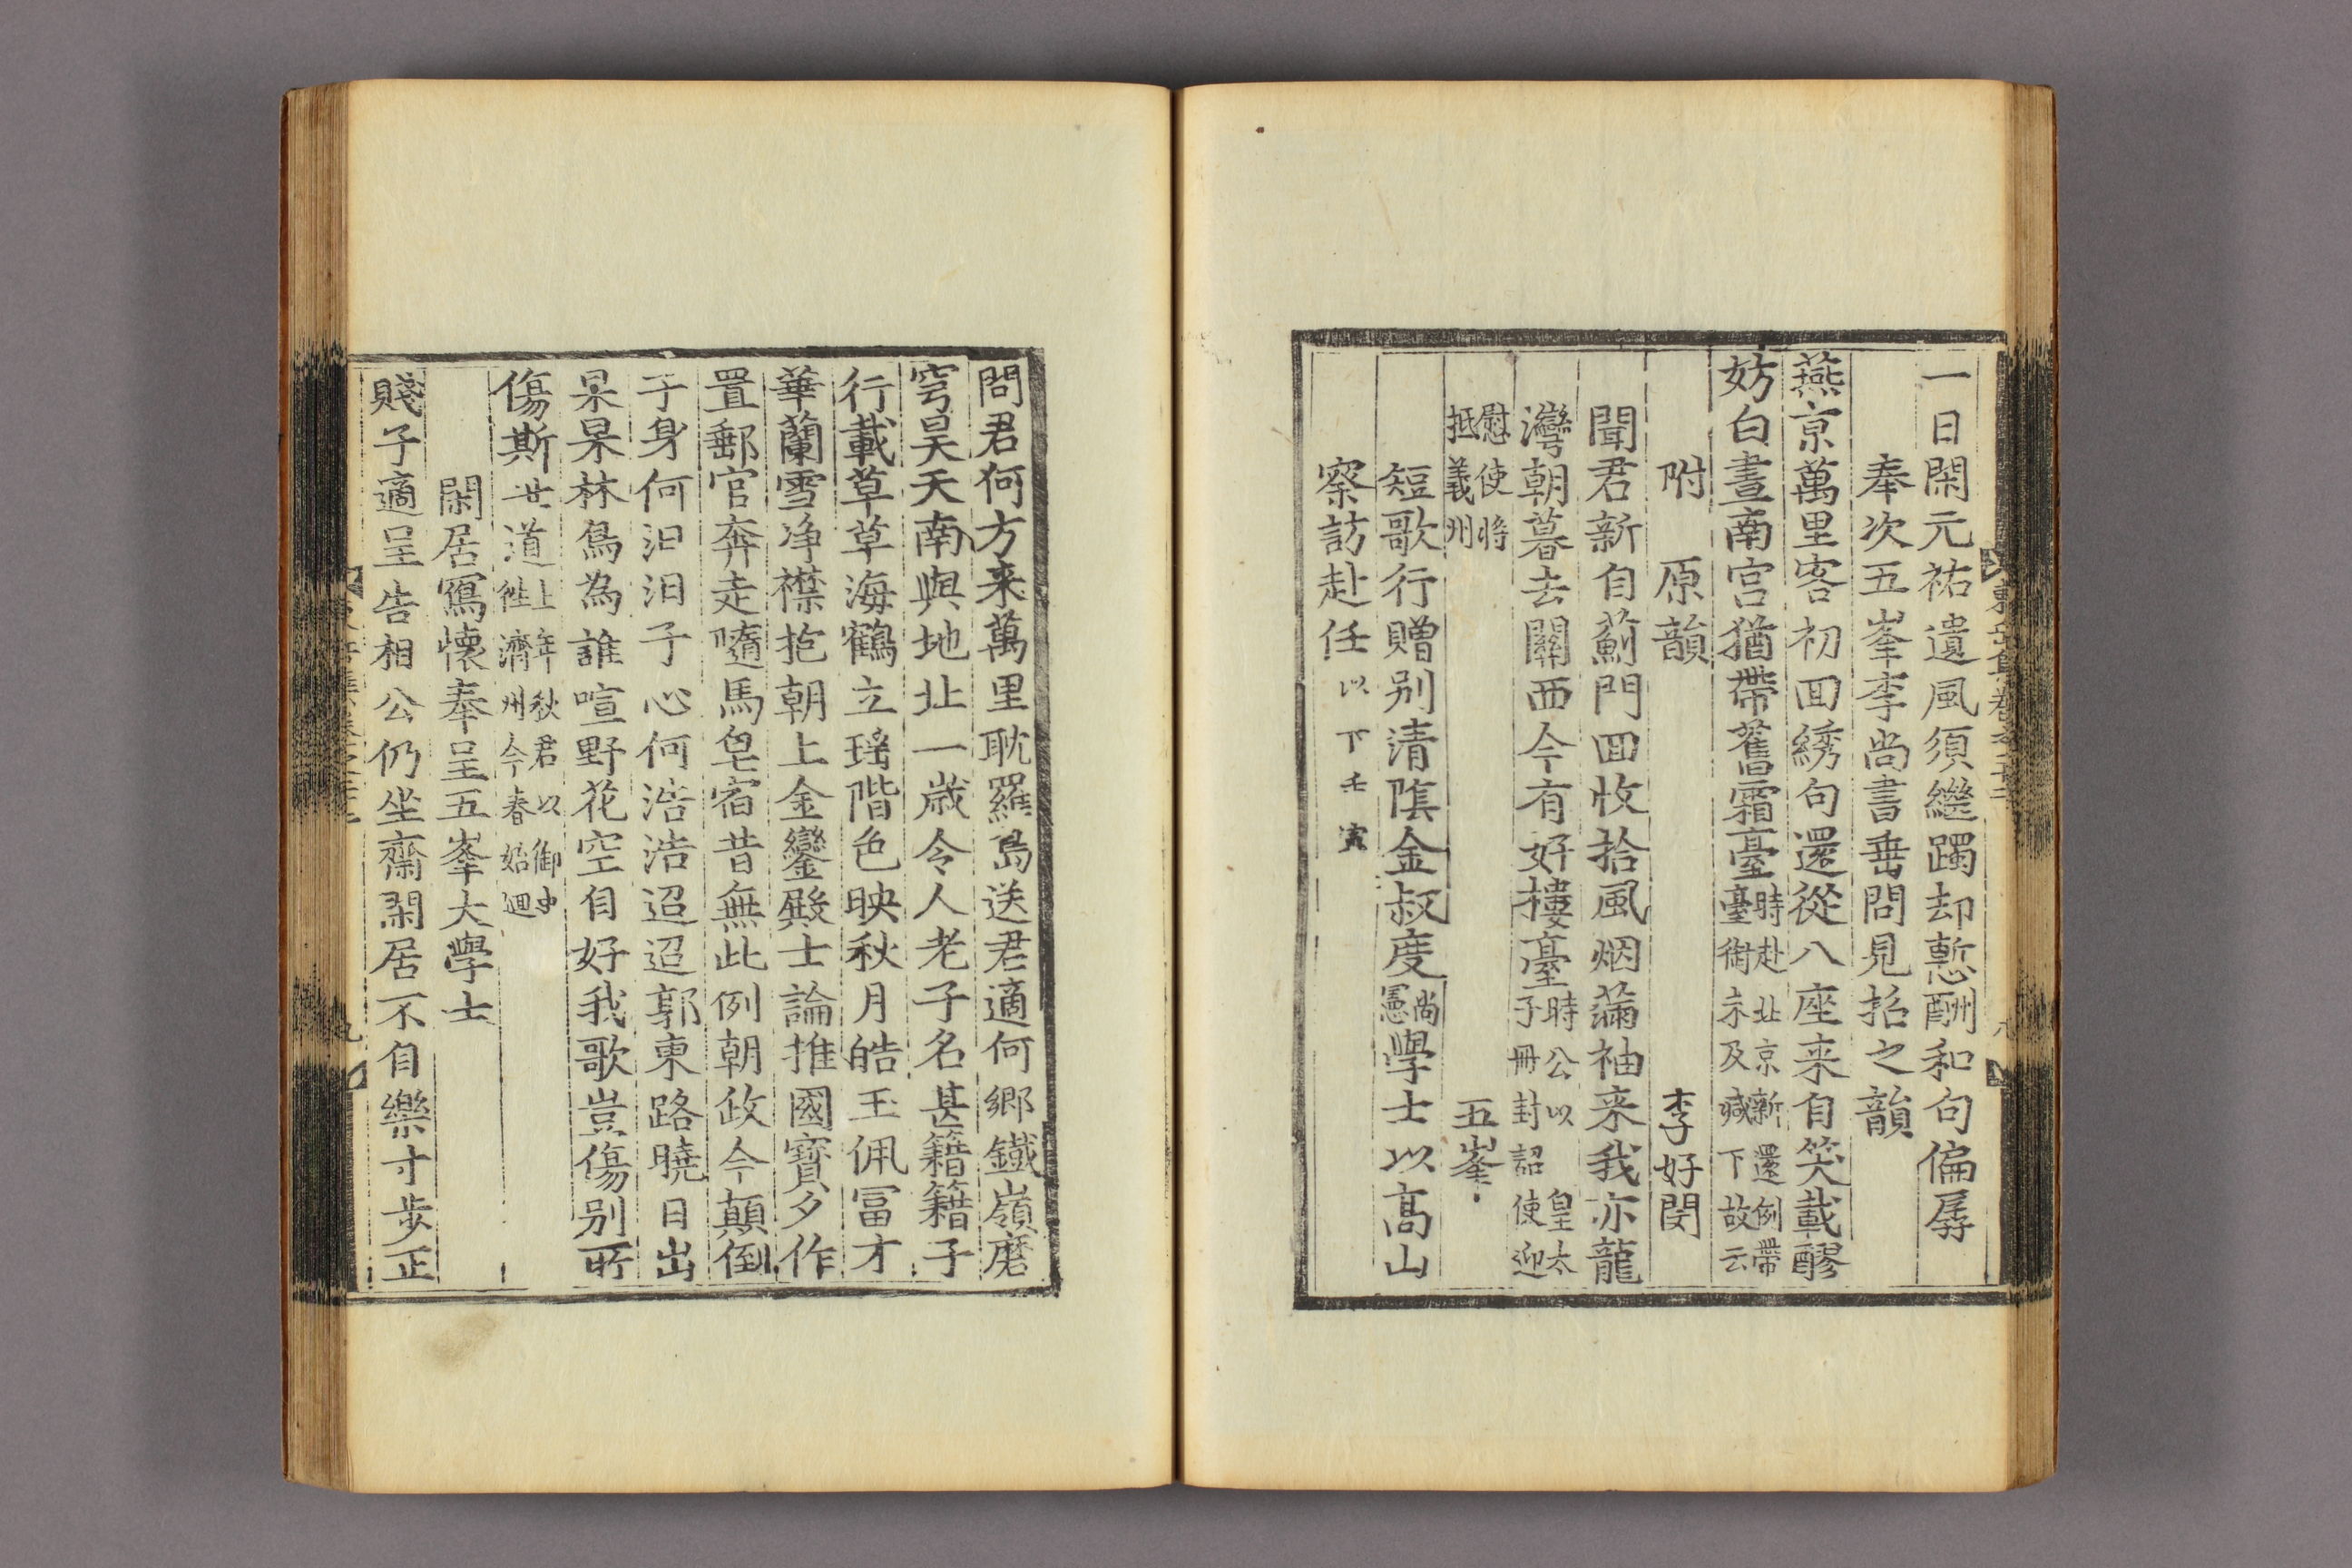 一日閑元祐遺風須繼躅却慙酬和句偏孱
奉次五峯李尚書垂問見招之韻
燕京萬里客初回綉句還從八座来自笑載醪
妨白晝南宮猶帶舊霜臺時赴北京新還例帶
臺銜未及喊下故云
附原韻李好閔
聞君新自薊門回收拾風烟滿袖来我亦龍
灣朝暮去關西今有好樓臺時公以皇太
子冊封詔使迎
慰使将
抵義州
五峯
短歌行贈别清陰金叔度尚
憲學士以高山
察訪赴任以下壬寅
問君何方来萬里耽羅島送君適何郷鐵嶺磨
穹昊天南與地北一歳令人老子名甚籍籍子
行載草草海鶴立瑤階色映秋月皓玉佩冨才
華蘭雪净襟抱朝上金鑾殿士論推國寶夕作
置郵官奔走隨馬皂宿昔無此例朝政今顛倒
于身何汩汩子心何浩浩迢迢郭東路曉日出
杲杲林鳥為誰喧野花空自好我歌豈傷别所
傷斯世道上年秋君以御史
徃濟州今春始廻
閑居寫懷奉呈五峯大學士
賤子適呈告相公仍坐齋閑居不自樂寸步正